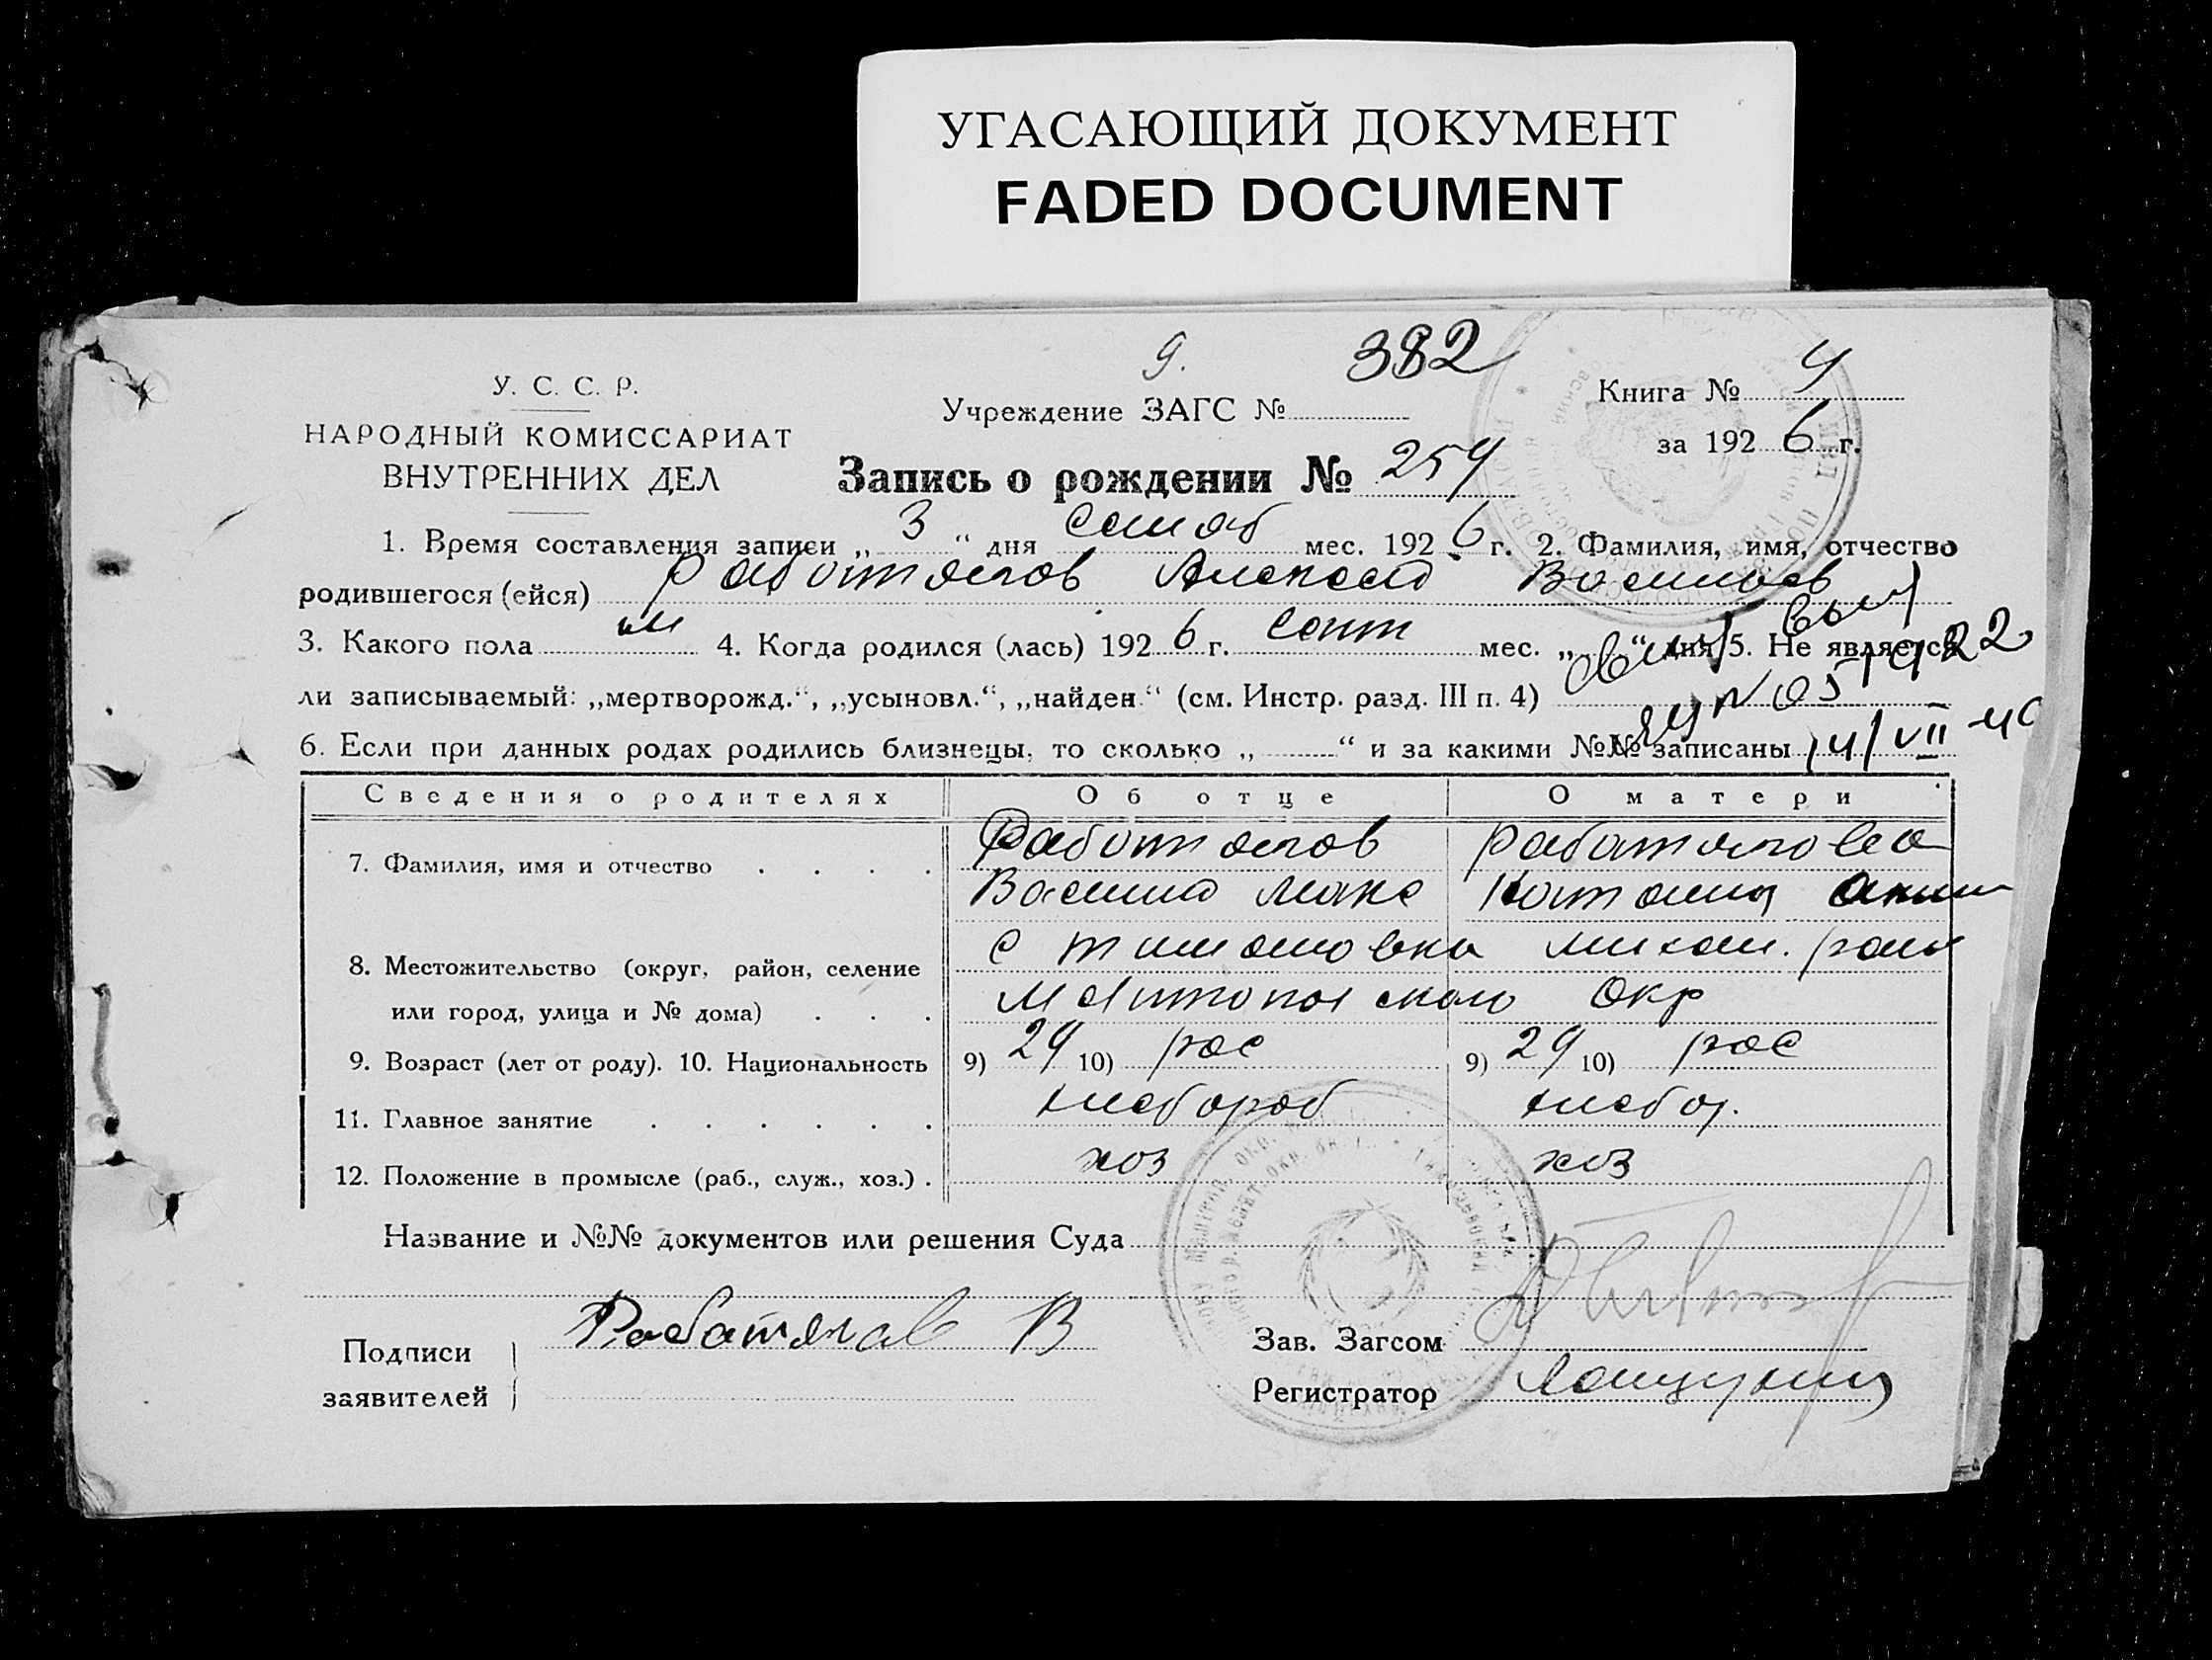 УГАСАЮЩИЙ ДОКУМЕНТ
FADED DOCUMENT
9. 382
У. С. С. Р.
НАРОДНЫЙ КОМИССАРИАТ
ВНУТРЕННИХ ДЕЛ
Учреждение ЗАГС №
Книга № 4
за 1926 г.
Запись о рождении № 259
1. Время составления записи „ 3 “ дня мес. 1926 г. 2. Фамилия, имя, отчество
родившегося (ейся) Работягов Алексей Васильев
3. Какого пола м 4. Когда родился (лась) 1926 г. сент мес. „ “ дня 5. Не является
ли записываемый: „мертворожд.“, „усыновл.“, „найден.“ (см. Инстр. разд. III п. 4)
6. Если при данных родах родились близнецы, то сколько „ “ и за какими №№ записаны 14/VII 40
Сведения о родителях Об отце О матери
7. Фамилия, имя и отчество Работягов Работягова
Василий Макс Наталия Аким
8. Местожительство (округ, район, селение с Тимашовка михай. рай
или город, улица и № дома) Мелитопольского Окр
9. Возраст (лет от роду). 10. Национальность 9) 29 10) рос 9) 29 10) рос
11. Главное занятие хлебороб хлебор.
12. Положение в промысле (раб., служ., хоз.) хоз хоз
Название и №№ документов или решения Суда
Подписи заявителей Работягов В
Зав. Загсом
Регистратор